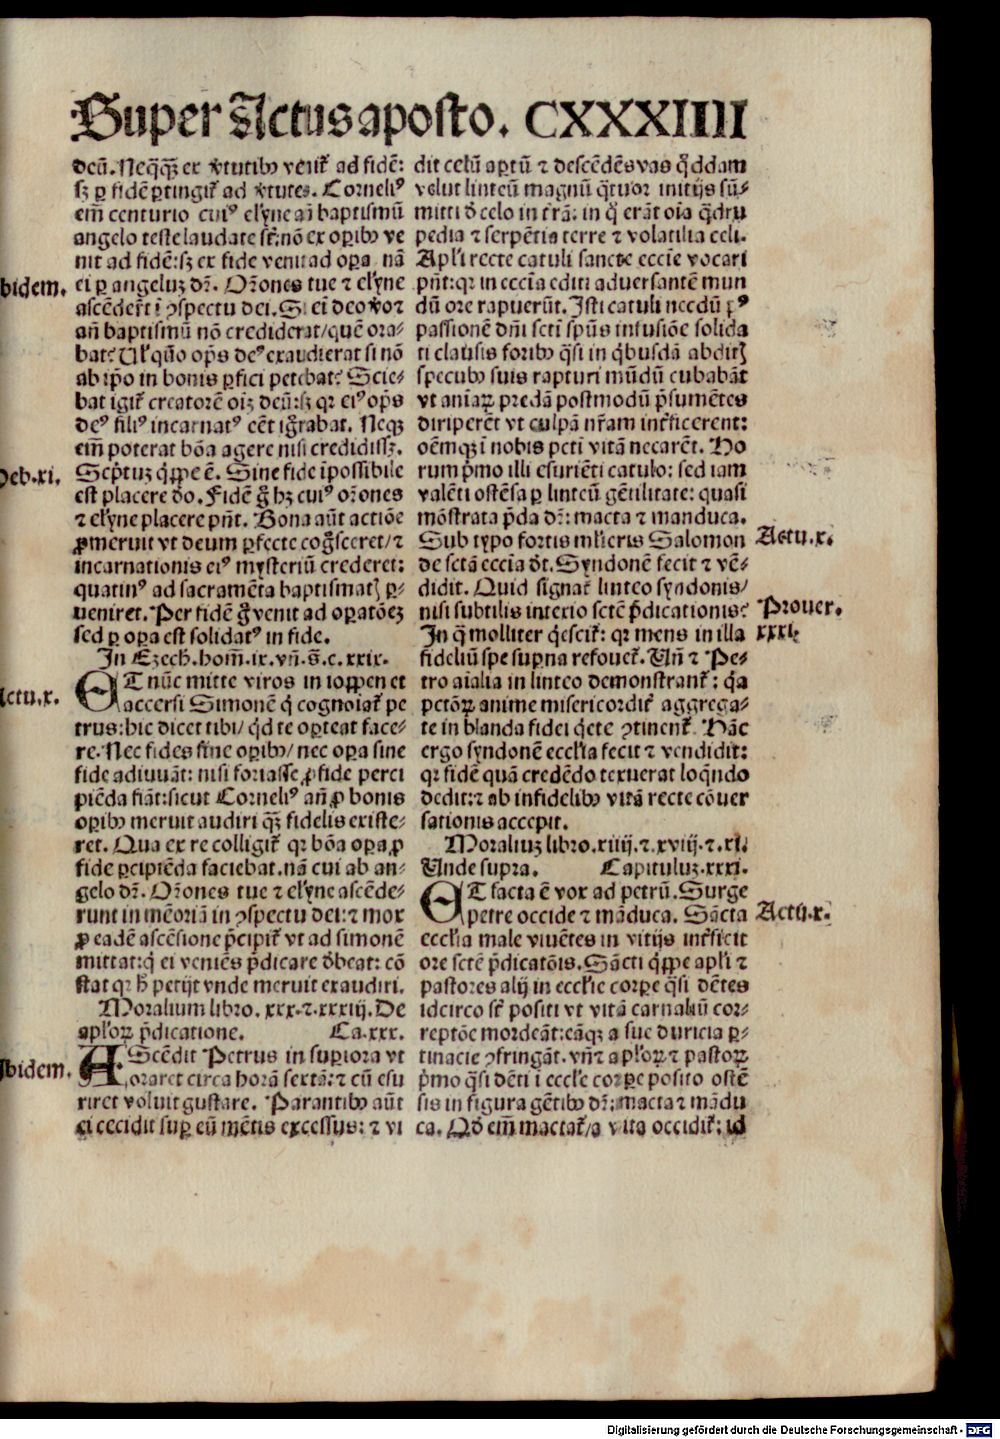 Super Actus aposto. CXXXIIII
deū. Neqꝫ̄ ex v̓tutibꝰ venit̄ ad fidē:
sꝫ ꝑ fidē ꝑtingit̄ ad v̓tutes. Corneliꝰ
eīm centurio cuiꝰ elyne an̄ baptismū
angelo teste laudate st̄: nō ex oꝑibꝰ ve
nit ad fidē: sꝫ ex fide venit ad oꝑa nā
ibidem.
ei ꝑ angeluꝫ dr̄. Or̄ones tue ⁊ elyne
ascēder̄t ī ꝯspectu dei. Si ei deo v̓o ⁊
an̄ baptismū nō crediderat/ quē ora-
bat? Ul̓ quō op̄s deꝰ exaudierat si nō
ab ip̄o in bonis ꝑfici petebat? Scie-
bat igit̄ creatorē oīꝫ deū: sꝫ qꝛ eiꝰ op̄s
deꝰ filiꝰ incarnatꝰ eēt iḡrabat. Neqꝫ
eīm poterat bōa agere nisi credidissꝫ.
Heb.xi.
Scp̄tuꝫ q̄ꝑpe ē. Sine fide īpossibile
est placere dō. Fidē g̊ hꝫ cuiꝰ or̄ones
⁊ elyne placere pn̄t. Bona aūt actiōe
ꝓmeruit vt deum ꝑfecte cog̊sceret/ ⁊
incarnationis eiꝰ mysteriū crederet:
quatinꝰ ad sacramēta baptismatꝭ ꝑ-
ueniret. Per fidē g̊ venit ad oꝑatōeꝫ
sed ꝑ oꝑa est solidatꝰ in fide.
In Ezech. hom̄. ix. vn̄. s̄. c. xxix.
Actu.x.
ET nūc mitte viros in ioppen et
accersi Simonē q̄ cognoīat̄ pe
trus: hic dicet tibi/ qd̄ te oꝑteat face-
re. Nec fides sine oꝑibꝰ/ nec oꝑa sine
fide adiuuāt: nisi fortasse ꝓ fide perci
piēda fiāt: sicut Corneliꝰ an̄ ꝓ bonis
oꝑibꝰ meruit audiri qꝫ̄ fidelis existe-
ret. Qua ex re colligit̄ qꝛ bōa oꝑa ꝓ
fide ꝑcipiēda faciebat. nā cui ab an-
gelo dr̄. Or̄ones tue ⁊ elyne ascēde-
runt in mēoriā in ꝯspectu dei: ⁊ mox
ꝓ eadē ascēsione p̄cipit̄ vt ad simonē
mittat: q̄ ei veniēs p̄dicare d̓beat: cō
stat qꝛ h̄ petijt vnde meruit exaudiri.
Moralium libro. xxx. ⁊. xxxiij. De
apl̓oꝝ p̄dicatione. Ca. xxx.
Ibidem.
AScēdit Petrus in suꝑiora vt
oraret circa horā sextā: ⁊ cū esu
riret voluit gustare. Parantibꝰ aūt
ei cecidit suꝑ eū mētis excessus: ⁊ vi
dit celū aꝑtū ⁊ descēdēs vas q̄ddam
velut linteū magnū q̄tuor initijs sū-
mitti d̓ celo in t̓rā: in q̊ erāt oīa q̄dru
pedia ⁊ serpētia terre ⁊ volatilia celi.
Apl̓i recte catuli sancte eccīe vocari
pn̄t: qꝛ in eccīa editi aduersantē mun
dū ore rapuerūt. Isti catuli necdū pꝰ
passionē dn̄i scti sp̄us infusiōe solida
ti clausis foribꝰ q̄si in q̄busdā abditꝭ
specubꝰ suis rapturi mūdū cubabāt
vt anīaꝝ predā postmodū p̄sumētes
diriperēt vt culpā nr̄am int̓ficerent:
oēmqꝫ ī nobis pcti vitā necarēt. Ho
rum p̄mo illi esuriēti catulo: sed iam
valēti ostēsa ꝑ linteū gētilitate: quasi
mōstrata p̄da dr̄: macta ⁊ manduca.
Actu.x.
Sub typo fortis ml̓ieris Salomon
de sctā eccīa dt̄. Syndonē fecit ⁊ vē-
didit. Quid signat̄ linteo syndonis/
Prouer.
nisi subtilis intexio sctē p̄dicationis?
xxxi.
In q̄ molliter q̄escit̄: qꝛ mens in illa
fideliū spe suꝑna refouet̄. Vn̄ ⁊ Pe-
tro aīalia in linteo demonstrant̄: q̄a
pctōꝝ anime misericordit̓ aggrega-
te in blanda fidei q̄ete ꝯtinent̄. Hāc
ergo syndonē ecclīa fecit ⁊ vendidit:
qꝛ fidē quā credēdo texuerat loq̄ndo
dedit: ⁊ ab infidelibꝰ vitā recte cōuer
sationis accepit.
Moraliuꝫ libro. xiiij. ⁊. xviij. ⁊. xl.
Unde supra. Capituluꝫ. xxxi.
ET facta ē vox ad petrū. Surge
Actu.x.
petre occide ⁊ māduca. Sācta
ecclīa male viuētes in vitijs int̓ficit
ore sctē p̄dicatōis. Sācti q̄ꝑpe apl̓i ⁊
pastores alij in ecclīe corꝑe q̄si dētes
idcirco st̄ positi vt vitā carnaliū cor-
reptōe mordeāt: eāqꝫ a sue duricia ꝑ-
tinacie ꝯfringāt. vn̄ ⁊ apl̓oꝝ ⁊ pastoꝝ
p̄mo q̄si dēti ī ecclīe corꝑe posito ostē
sis in figura gētibꝰ dr̄: macta ⁊ mādu
ca. Qd̓ eīm mactat̄/ a vita occidit̄: id
Digitalisierung gefördert durch die Deutsche Forschungsgemeinschaft - DFG